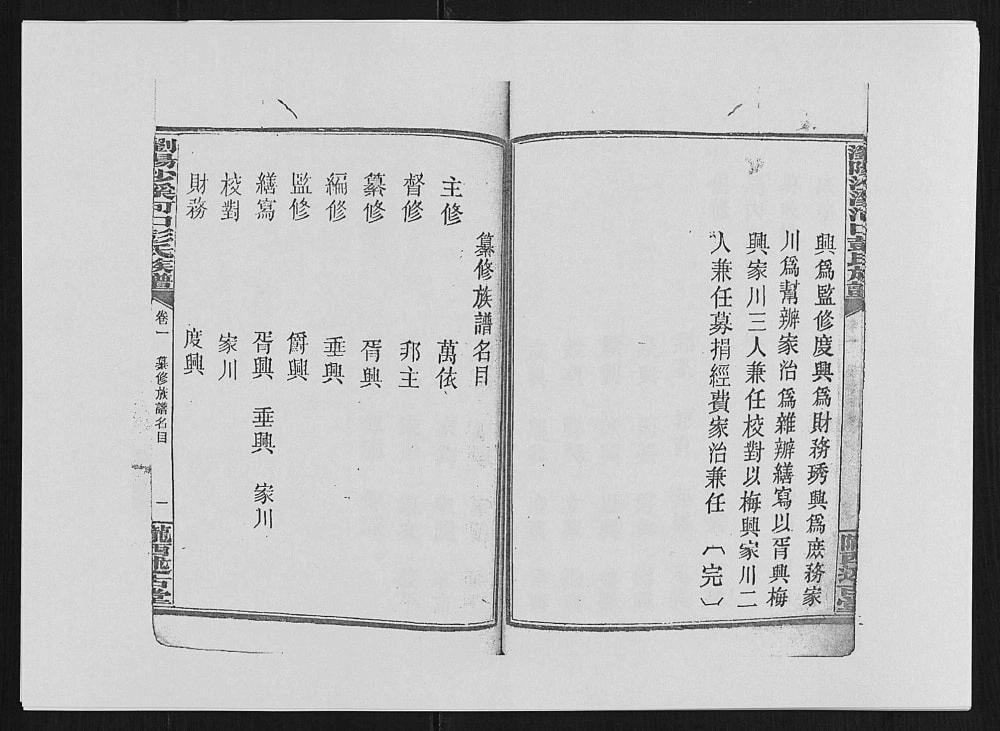 興爲監修度興爲財務琇興爲庶務家
川爲幫辦家治爲雜辦繕寫以胥興梅
興家川三人兼任校對以梅興家川二
人兼任募捐經費家治兼任（完）
纂修族譜名目
主修 萬依
督修 邦主
纂修 胥興
編修 垂興
監修 爵興
繕寫 胥興 垂興 家川
校對 家川
財務 度興
瀏陽沙溪河口彭氏族譜
卷一 纂修族譜名目 一
隴西述古堂